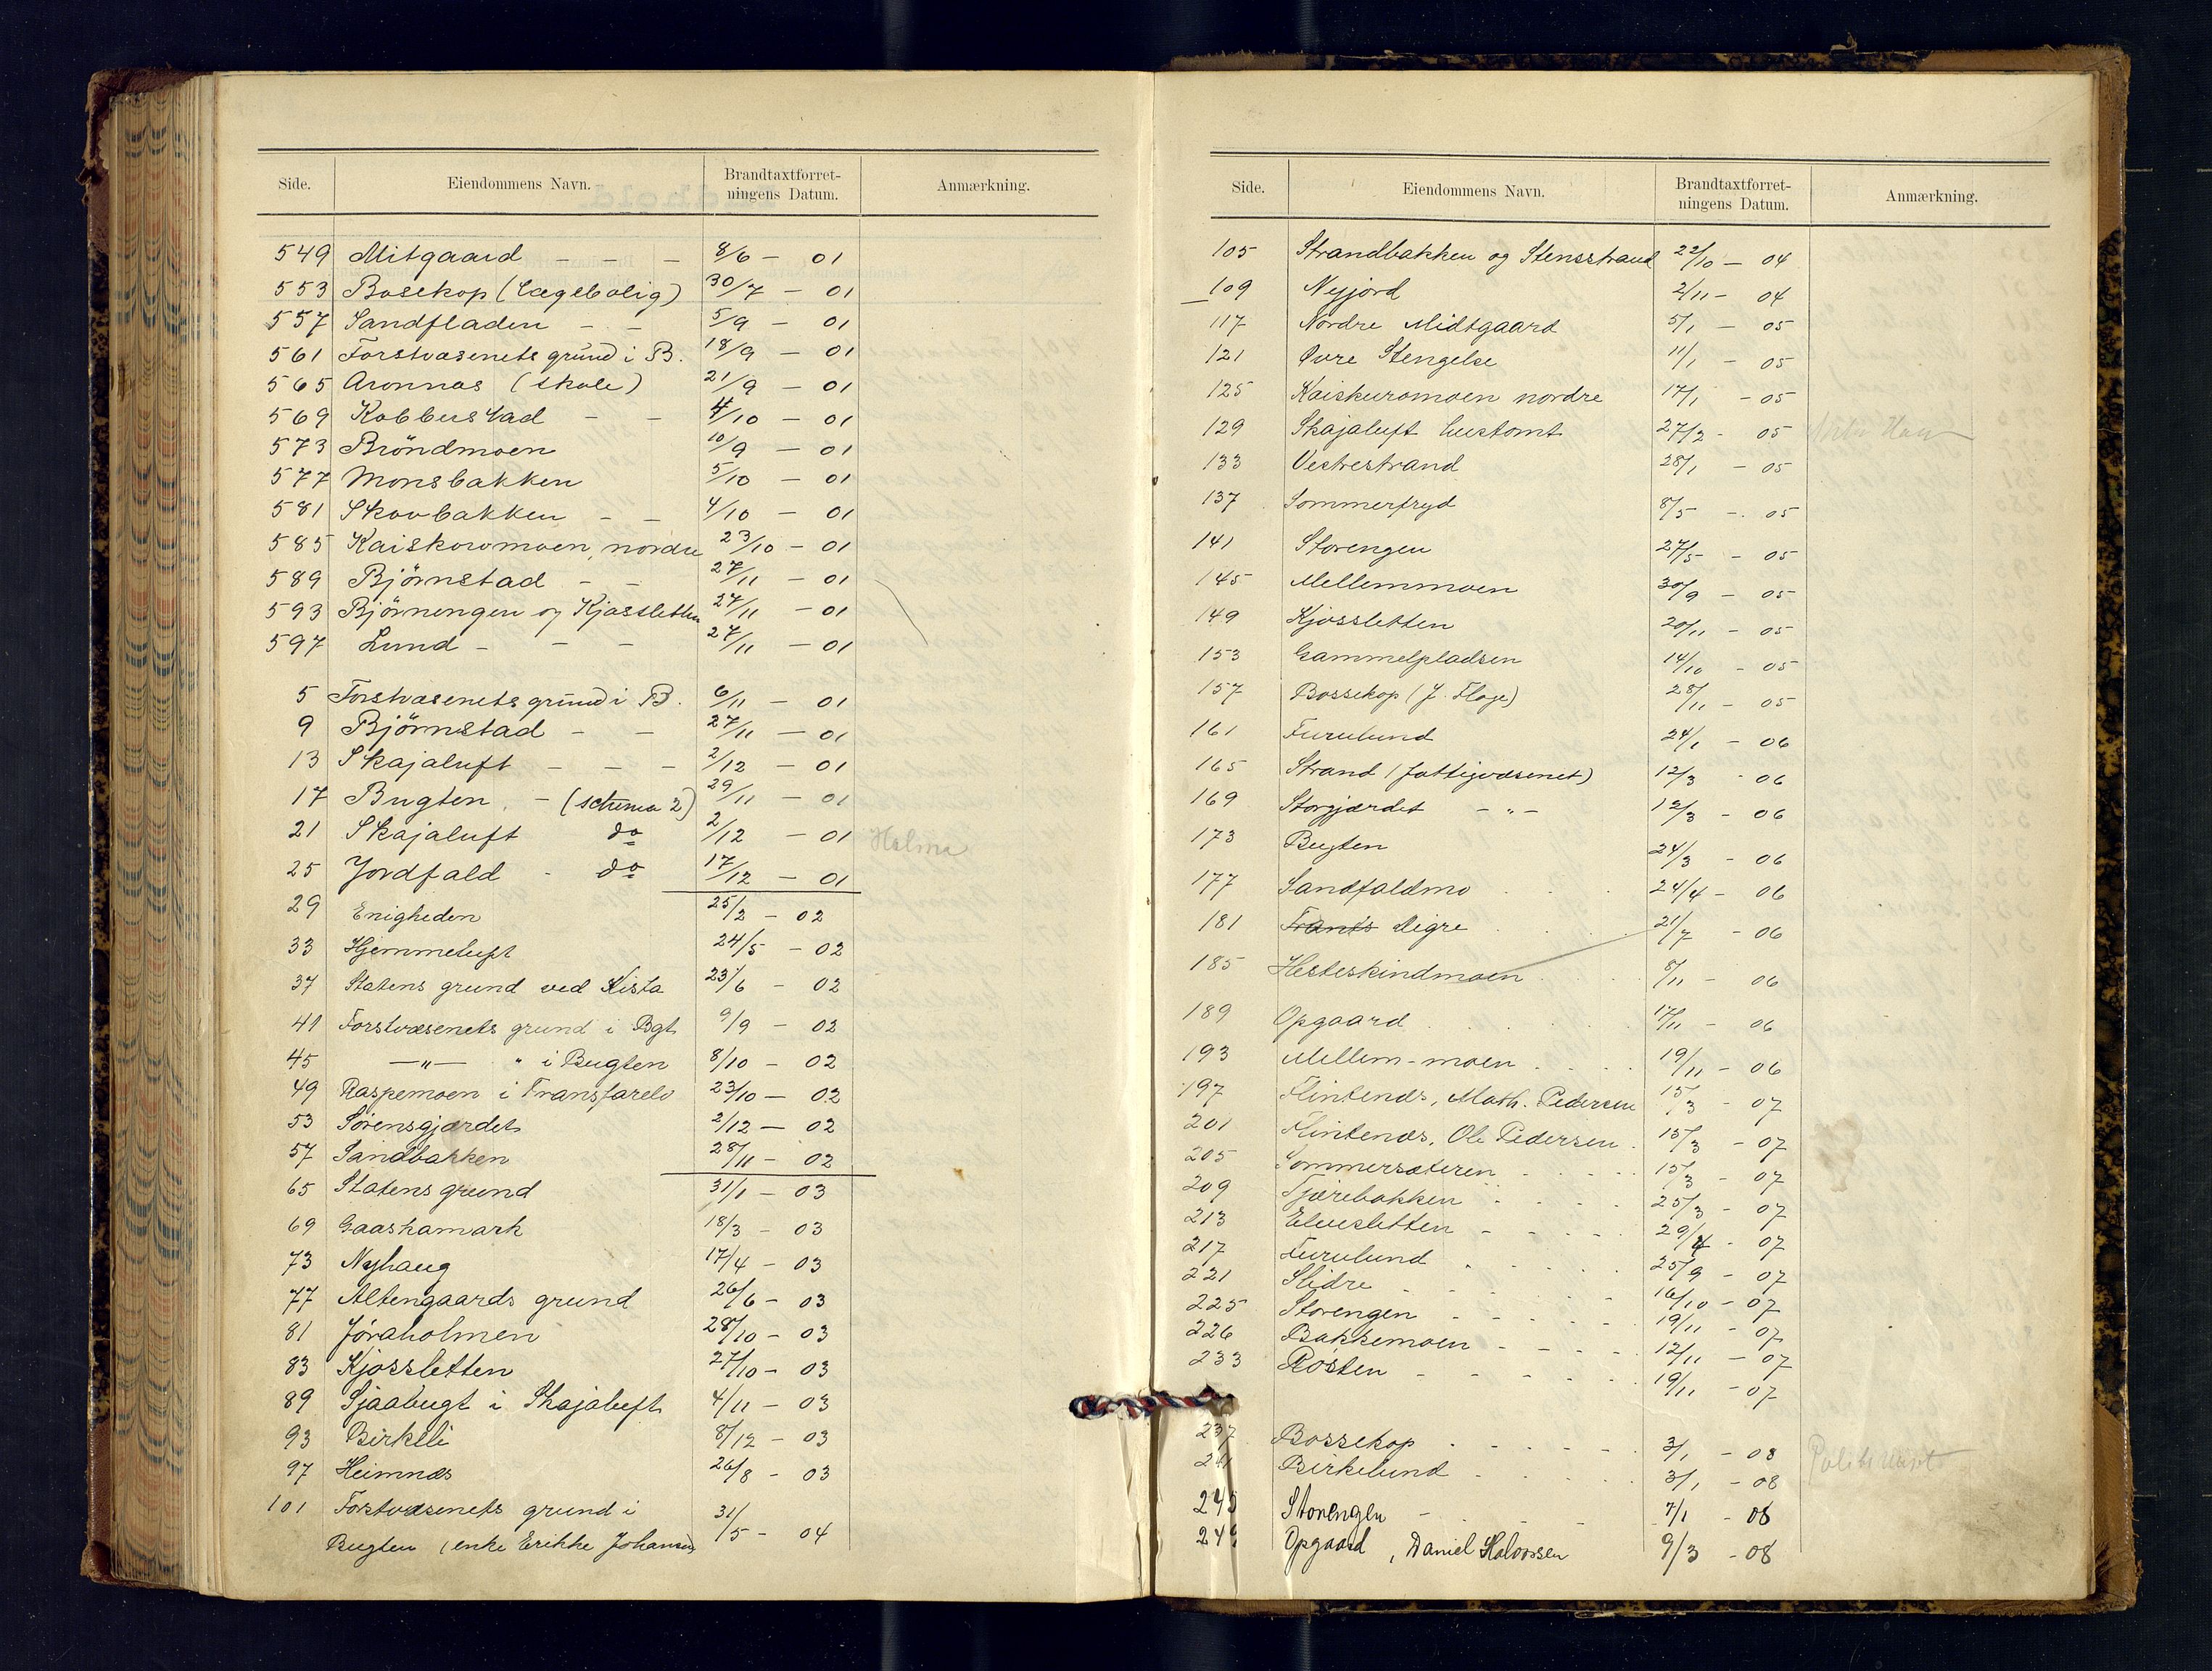 Side. Eiendommens Navn. Brandtaxtforret-ningens Datum. Anmærkning.
549 Mitgaard - - - 8/6 - 01
553 Bosekop (Lægebolig) 30/7 - 01
557 Sandfladen - - 5/9 - 01
561 Forstvæsenets grund i B. 18/9 - 01
565 Aronnæs (skole) 21/9 - 01
569 Kobberstad - - 4/10 - 01
573 Bröndmoen 10/9 - 01
577 Monsbakken 5/10 - 01
581 Skovbakken - - 4/10 - 01
585 Kaiskoromoen, nordre 23/10 - 01
589 Björnstad - - 27/11 - 01
593 Björnengen og Kjossletten 27/11 - 01
597 Lund - - - 27/11 - 01
5 Forstvæsenets grund i B. 6/11 - 01
9 Björnstad - - 27/11 - 01
13 Skajaluft - - - 2/12 - 01
17 Bugten. - (schema 2) 29/11 - 01
21 Skajaluft do 2/12 - 01 Halma
25 Jordfald - do 17/12 - 01
29 Enigheden 25/2 - 02
33 Hjemmeluft 24/5 - 02
37 Statens grund ved Kista 23/6 - 02
41 Forstvæsenets grund i Bgt 9/9 - 02
45 -"- " i Bugten 8/10 - 02
49 Raspemoen i Transfarelv 23/10 - 02
53 Sørensgjærdet 2/12 - 02
57 Sandbakken 28/11 - 02
65 Statens grund 31/1 - 03
69 Gaaskamark 18/3 - 03
73 Nyhaug 17/4 - 03
77 Altengaards grund 26/6 - 03
81 Jøraholmen 28/10 - 03
83 Kjossletten 27/10 - 03
89 Sjaabugt i Skajaluft 4/11 - 03
93 Birkeli 8/12 - 03
97 Heimnæs 26/8 - 03
101 Forstvæsenets grund i
Bugten (enke Erikke Johansen 31/5 - 04
Side. Eiendommens Navn. Brandtaxtforret-ningens Datum. Anmærkning.
105 Strandbakken og Stensstrand 22/10 - 04
109 Nyjord 2/11 - 04
117 Nordre Midtgaard 5/1 - 05
121 Øvre Stengelse 11/1 - 05
125 Kaiskuromoen nordre 17/1 - 05
129 Skajaluft hustomt 27/2 - 05
133 Vestrestrand 28/1 - 05
137 Sommerfryd 8/5 - 05
141 Storengen 27/5 - 05
145 Mellemmoen 30/9 - 05
149 Kjossletten 20/11 - 05
153 Gammelpladsen 14/10 - 05
157 Bossekop (J. Floge) 28/11 - 05
161 Furulund 24/1 - 06
165 Strand (fattigvæsenet) 12/3 - 06
169 Storgjærdet -"- 12/3 - 06
173 Bugten 24/3 - 06
177 Sandfaldmo 24/4 - 06
181 Digre 21/7 - 06
185 Hesteskindmoen 8/11 - 06
189 Opgaard 17/11 - 06
193 Mellem-moen 19/11 - 06
197 Flintenæs, Math. Pedersen 15/3 - 07
201 Flintenæs, Ole Pedersen 15/3 - 07
205 Sommersæteren 15/3 - 07
209 Tjærebakken 25/3 - 07
213 Elvesletten - - - - 29/4 - 07
217 Furulund 25/9 - 07
221 Slidre 16/10 - 07
225 Storengen 19/11 - 07
226 Bakkemoen 12/11 - 07
233 Rösten 19/11 - 07
237 Bossekop 3/1 - 08
241 Birkelund 3/1 - 08
245 Storengen - 7/1 - 08
249 Opgaard, Daniel Halvorsen 9/3 - 08